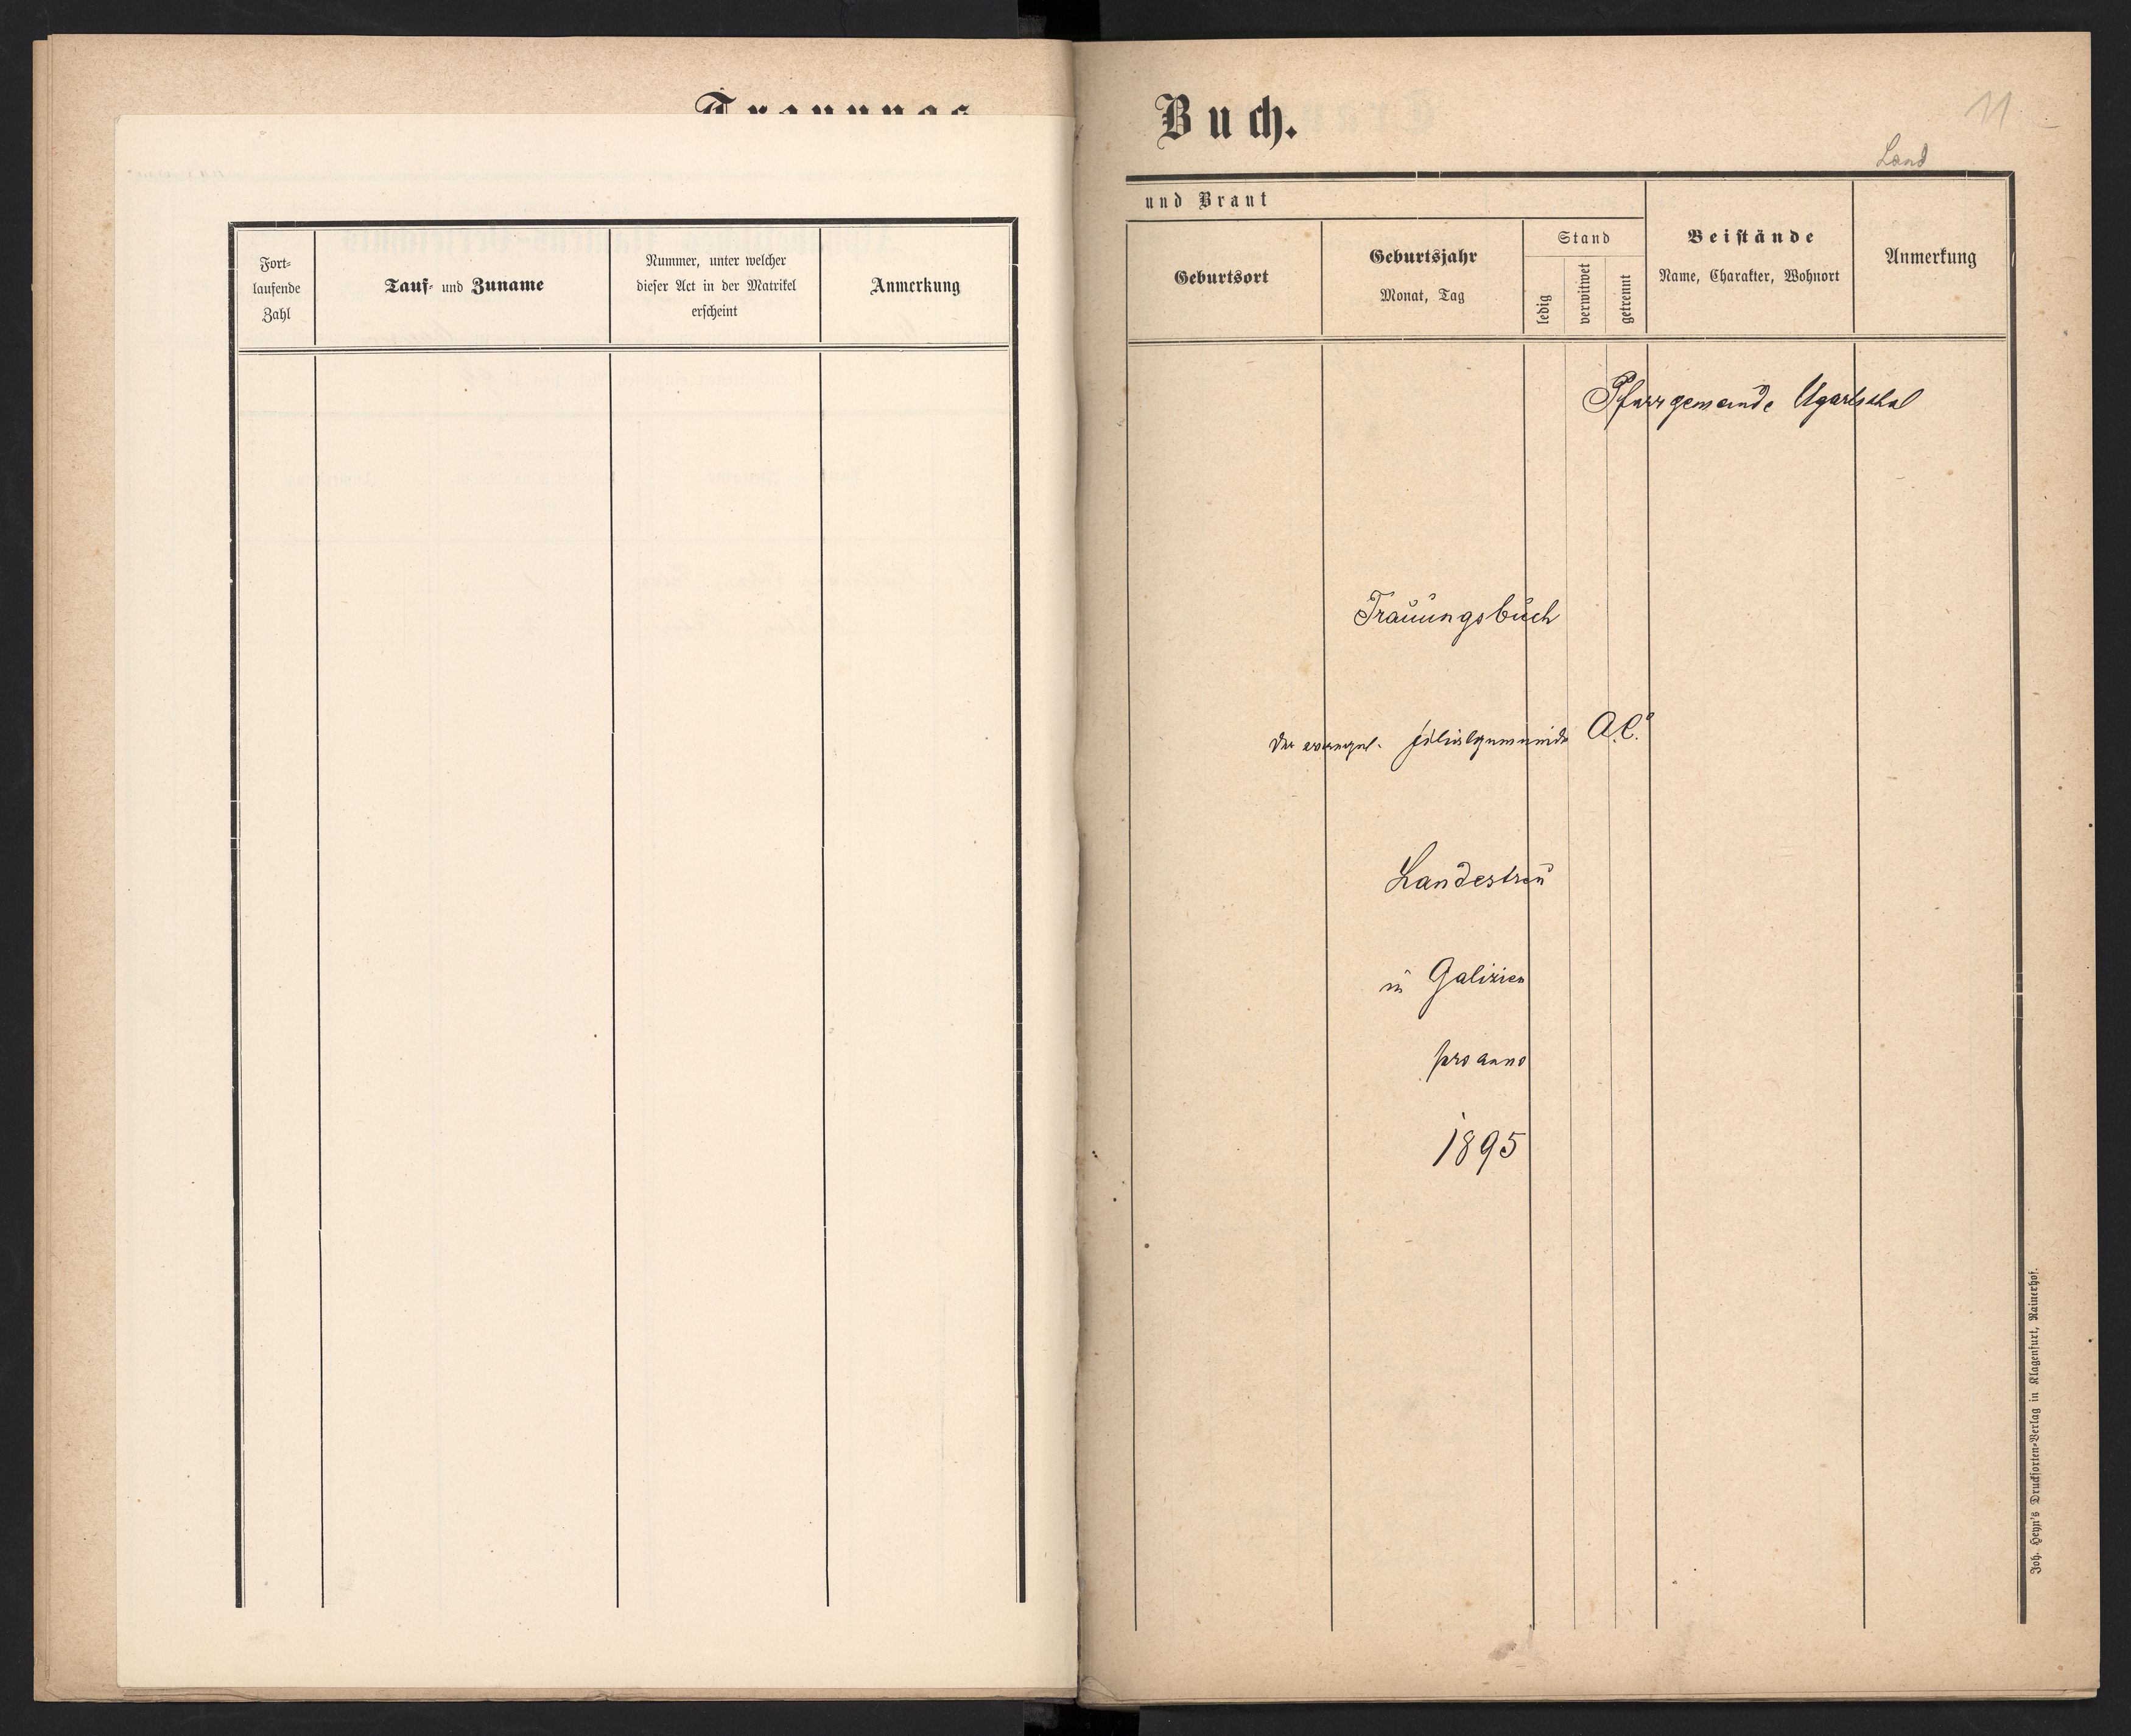 Trauungs
Fort-
laufende
Zahl
Tauf- und Zuname
Nummer, unter welcher
dieser Act in der Matrikel
erscheint
Anmerkung
Buch.
11
Land
und Braut
Geburtsort
Geburtsjahr
Monat, Tag
Stand
ledig
verwitwet
getrennt
Beistände
Name, Charakter, Wohnort
Anmerkung
Pfarrgemeinde Ugartsthal
Trauungsbuch
der evangel. Filialgemeinde A.C.
Landestreu
in Galizien
pro anno
1895
Joh. Heyn's Drucksorten-Verlag in Klagenfurt, Rainerhof.